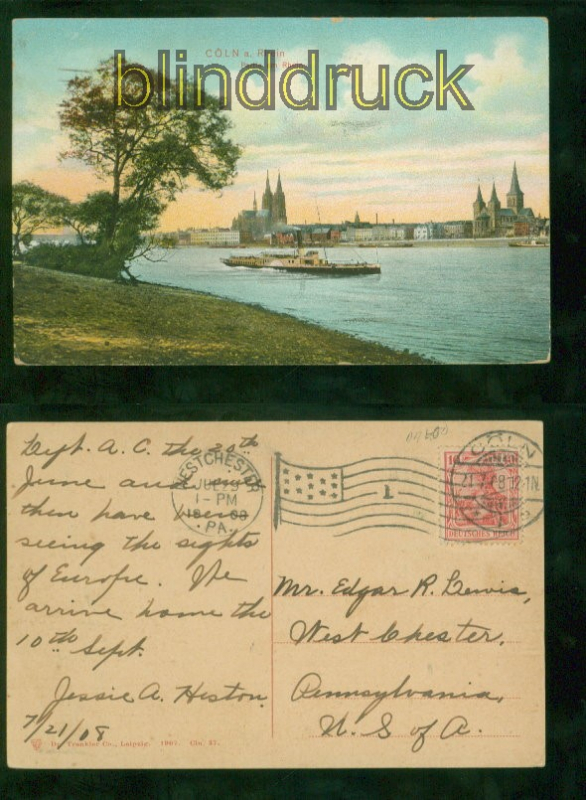 CÖLN a. Rhein
blinddruck
Dept. A. C. the 20th
June and since
then have been
seeing the sights
of Europe. We
arrive home the
10th Sept.
Jessie A. Heston.
7/21/08
WESTCHESTER
1-PM
PA.
1
CÖLN
DEUTSCHES REICH
Mr. Edgar R. Lewis,
West Chester,
Pennsylvania,
U. S of A.
Dr. Trenkler Co., Leipzig. 1907. Cln. 37.